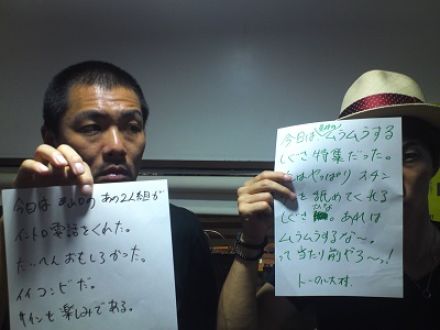 今日は
あの2人組が
イントロ電話をくれた。
たいへんおもしろかった。
イイコンビだ。
も楽しみである。
今日は ムラムラする
しぐさ特集だった。
はやっぱり
を舐めてくれる
しぐさ あれは
ムラムラするな〜。
って当たり前だろ〜!